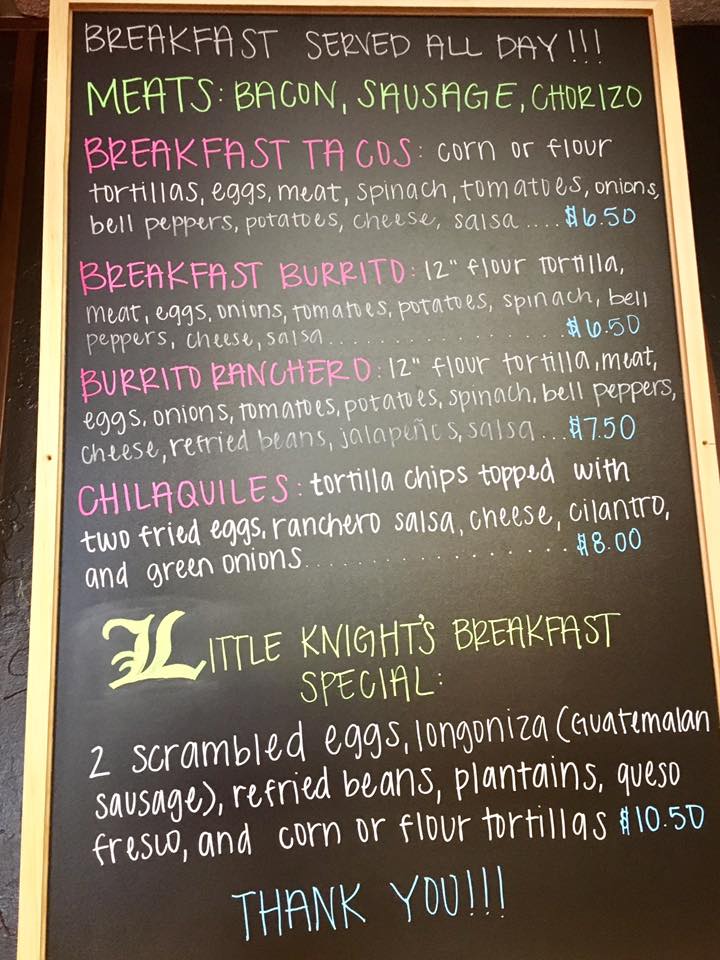 BREAKFAST SERVED ALL DAY!!!
MEATS: BACON, SAUSAGE, CHORIZO
BREAKFAST TACOS: corn or flour
tortillas, eggs, meat, spinach, tomatoes, onions,
bell peppers, potatoes, cheese, salsa .... $6.50
BREAKFAST BURRITO: 12" flour tortilla,
meat, eggs, onions, tomatoes, potatoes, spinach, bell
peppers, cheese, salsa....................... $6.50
BURRITO RANCHERO: 12" flour tortilla, meat,
eggs, onions, tomatoes, potatoes, spinach, bell peppers,
cheese, refried beans, jalapeños, salsa ... $7.50
CHILAQUILES: tortilla chips topped with
two fried eggs, ranchero salsa, cheese, cilantro,
and green onions.................... $8.00
LITTLE KNIGHT'S BREAKFAST
SPECIAL:
2 scrambled eggs, longoniza (Guatemalan
sausage), refried beans, plantains, queso
fresco, and corn or flour tortillas $10.50
THANK YOU!!!